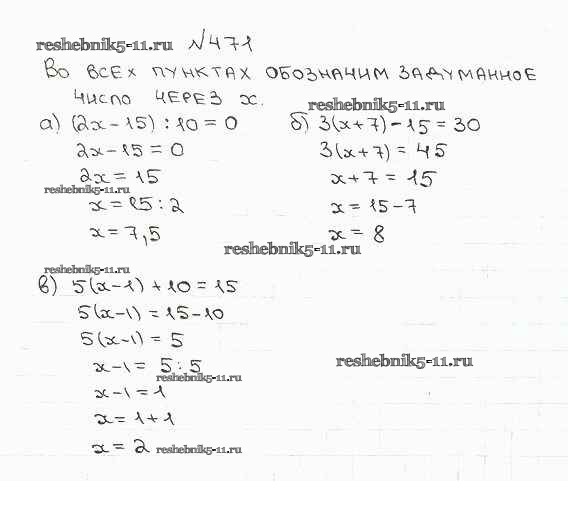 reshebnik5-11.ru №471
Во всех пунктах обозначим задуманное
число через x.
reshebnik5-11.ru
а) (2x-15):10=0
2x-15=0
2x=15
reshebnik5-11.ru
x=15:2
x=7,5
б) 3(x+7)-15=30
3(x+7)=45
x+7=15
x=15-7
x=8
reshebnik5-11.ru
reshebnik5-11.ru
в) 5(x-1)+10=15
5(x-1)=15-10
5(x-1)=5
x-1=5:5
reshebnik5-11.ru
reshebnik5-11.ru
x-1=1
x=1+1
x=2 reshebnik5-11.ru